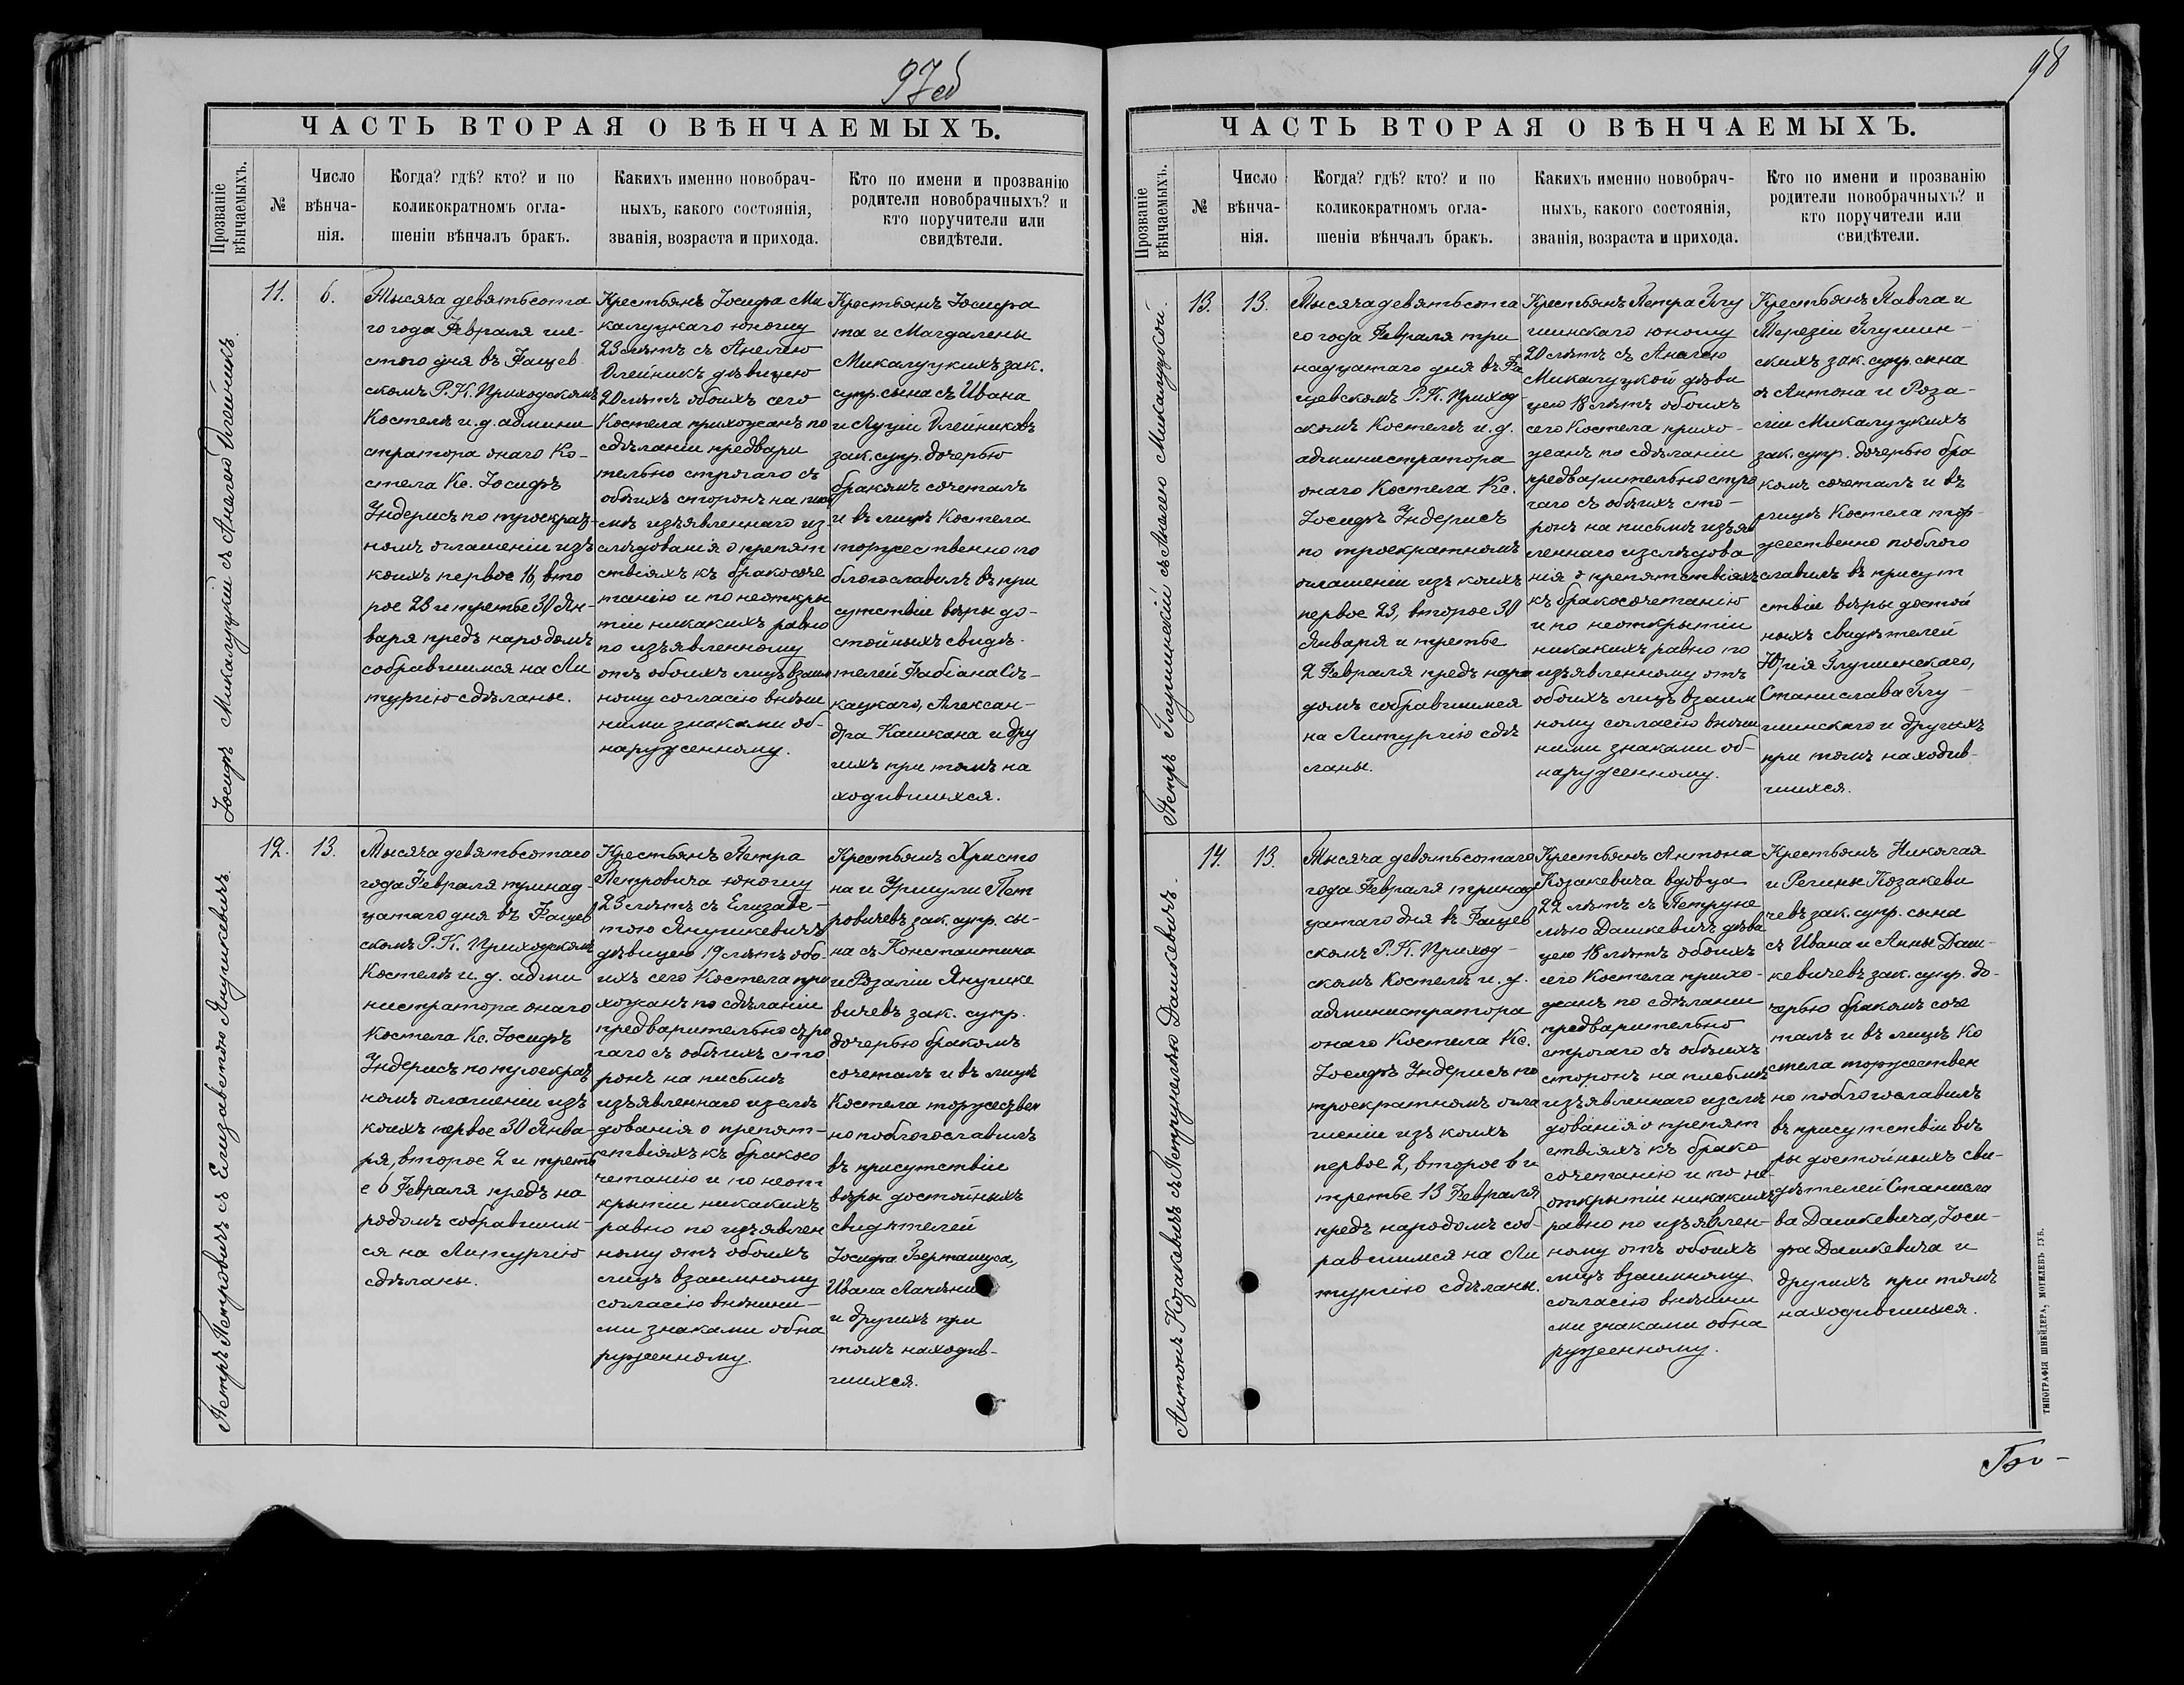 97об
ЧАСТЬ ВТОРАЯ О ВѢНЧАЕМЫХЪ.
Прозваніе
вѣнчаемыхъ.
№
Число
вѣнча-
нія.
Когда? гдѣ? кто? и по
коликократномъ огла-
шеніи вѣнчалъ бракъ.
Какихъ именно новобрач-
ныхъ, какого состоянія,
званія, возраста и прихода.
Кто по имени и прозванію
родители новобрачныхъ? и
кто поручители или
свидѣтели.
Іосифъ Микалуцкій съ Анелею Олейникъ
11.
6.
Тысяча девятьсота
го года Февраля ше-
стого дня въ Фащев
скомъ Р. К. Приходскомъ
Костелѣ и. д. админи
стратора онаго Ко-
стела Кс. Іосифъ
Ундерисъ по троекрат-
номъ оглашеніи изъ
коихъ первое 16, вто
рое 23 и третье 30 Ян-
варя предъ народомъ
собравшимся на Ли
тургію сдѣланы.
Крестьянъ Іосифа Ми
калуцкаго юношу
23 лѣтъ съ Анелею
Олейникъ дѣвицею
20 лѣтъ обоихъ сего
Костела прихожанъ по
сдѣланіи предвари
тельно строгаго съ
обѣихъ сторонъ на пись
мѣ изъявленнаго из
слѣдованія о препят
ствіяхъ къ бракосоче
танію и по неоткры
тіи никакихъ равно
по изъявленному
отъ обоихъ лицъ взаим
ному согласію внѣш
ними знаками об-
наруженному.
Крестьянъ Іосифа
та и Магдалены
Микалуцкихъ зак.
супр. сына съ Ивана
и Луціи Олейниковъ
зак. супр. дочерью
бракомъ сочеталъ
и въ лицѣ Костела
торжественно по
благословилъ въ при
сутствіи вѣры до-
стойныхъ свидѣ-
телей Фабіана Сѣ-
кацкаго, Алексан-
дра Кашкана и дру
гихъ при томъ на
ходившихся.
Петръ Петровичъ съ Елизаветою Янушкевичъ
12.
13.
Тысяча девятьсотаго
года Февраля тринад-
цатаго дня въ Фащев
скомъ Р. К. Приходскомъ
Костелѣ и. д. адми
нистратора онаго
Костела Кс. Іосифъ
Ундерисъ по троекрат
номъ оглашеніи изъ
коихъ первое 30 Янва-
ря, второе 2 и треть
е 6 Февраля предъ на
родомъ собравшим-
ся на Литургію
сдѣланы.
Крестьянъ Петра
Петровича юношу
23 лѣтъ съ Елизаве-
тою Янушкевичъ
дѣвицею 19 лѣтъ обо-
ихъ сего Костела при
хожанъ по сдѣланіи
предварительно стро
гаго съ обѣихъ сто
ронъ на письмѣ
изъявленнаго изслѣ
дованія о препят-
ствіяхъ къ бракосо
четанію и по неот
крытіи никакихъ
равно по изъявлен
ному отъ обоихъ
лицъ взаимному
согласію внѣшни-
ми знаками обна
руженному.
Крестьянъ Христо
на и Уршули Пет
ровичевъ зак. супр. сы-
на съ Константина
и Розаліи Янушке
вичевъ зак. супр.
дочерью бракомъ
сочеталъ и въ лицѣ
Костела торжествен
но поблагославилъ
въ присутствіи
вѣры достойныхъ
свидѣтелей
Іосифа
Ивана
и другихъ при
томъ находив-
шихся.
98
ЧАСТЬ ВТОРАЯ О ВѢНЧАЕМЫХЪ.
Прозваніе
вѣнчаемыхъ.
№
Число
вѣнча-
нія.
Когда? гдѣ? кто? и по
коликократномъ огла-
шеніи вѣнчалъ бракъ.
Какихъ именно новобрач-
ныхъ, какого состоянія,
званія, возраста и прихода.
Кто по имени и прозванію
родители новобрачныхъ? и
кто поручители или
свидѣтели.
Петръ Глушинскій съ Анелею Микалуцкой.
13.
13.
Тысяча девятьсота
го года Февраля три
надцатаго дня въ Фа
щевскомъ Р. К. Приход
скомъ Костелѣ и. д.
администратора
онаго Костела Кс.
Іосифъ Ундерисъ
по троекратномъ
оглашеніи изъ коихъ
первое 23, второе 30
Января и третье
2 Февраля предъ наро
домъ собравшимся
на Литургію сдѣ
ланы.
Крестьянъ Петра Глу
шинскаго юношу
20 лѣтъ съ Анелею
Микалуцкой дѣви
цею 18 лѣтъ обоихъ
сего Костела прихо-
жанъ по сдѣланіи
предварительно стро
гаго съ обѣихъ сто-
ронъ на письмѣ изъяв
леннаго изслѣдова
нія о препятствіяхъ
къ бракосочетанію
и по неоткрытіи
никакихъ равно по
изъявленному отъ
обоихъ лицъ взаим
ному согласію внѣш
ними знаками об-
наруженному.
Крестьянъ Павла и
Терезіи Глушин-
скихъ зак. супр. сына
съ Антона и Роза-
ліи Микалуцкихъ
зак. супр. дочерью бра
комъ сочеталъ и въ
лицѣ Костела тор-
жественно поблаго
славилъ въ присут
ствіи вѣры достой
ныхъ свидѣтелей
Юрія Глушинскаго,
Станислава Глу-
шинскаго и другихъ
при томъ находив-
шихся.
Антонъ Козакевичъ съ Петрунелею Дашкевичъ.
14.
13.
Тысяча девятьсотаго
года Февраля тринад
цатаго дня въ Фащев
скомъ Р. К. Приход-
скомъ Костелѣ и. д.
администратора
онаго Костела Кс.
Іосифъ Ундерисъ по
троекратномъ огла
шеніи изъ коихъ
первое 2, второе 6 и
третье 13 Февраля
предъ народомъ соб-
равшимся на Ли
тургію сдѣланы.
Крестьянъ Антона
Козакевича вдовца
22 лѣтъ съ Петруне
лѣю Дашкевичъ дѣви
цею 18 лѣтъ обоихъ
сего Костела прихо-
жанъ по сдѣланіи
предварительно
строгаго съ обѣихъ
сторонъ на письмѣ
изъявленнаго изслѣ
дованія о препят
ствіяхъ къ брако
сочетанію и по не
открытіи никакихъ
равно по изъявлен-
ному отъ обоихъ
лицъ взаимному
согласію внѣшни
ми знаками обна
руженному.
Крестьянъ Николая
и Регины Козакеви
чевъ зак. супр. сына
съ Ивана и Анны Даш-
кевичевъ зак. супр. до-
черью бракомъ соче
талъ и въ лицѣ Ко
стела торжествен
но поблогославилъ
въ присутствіи вѣ
ры достойныхъ сви-
дѣтелей Станисла
ва Дашкевича, Іоси-
фа Дашкевича и
другихъ при томъ
находившихся.
ТИПОГРАФІЯ ШНЕЙДЕРА, МОГИЛЕВЪ ГУБ.